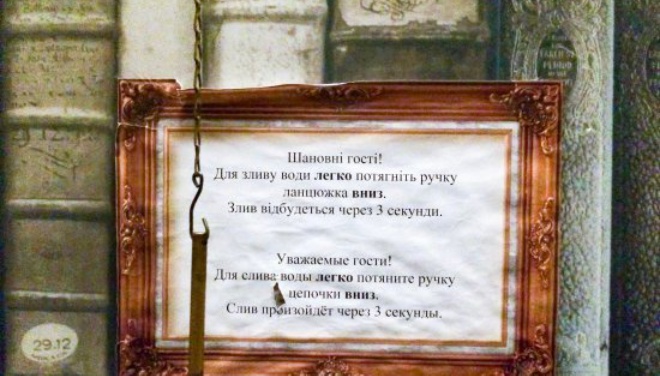 Шановні гості!
Для зливу води легко потягніть ручку
ланцюжка вниз.
Злив відбудеться через 3 секунди.
Уважаемые гости!
Для слива воды легко потяните ручку
цепочки вниз.
Слив произойдёт через 3 секунды.
29.12